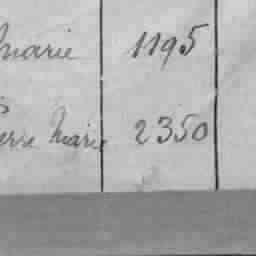 Marie 1195
erre Marie 2350